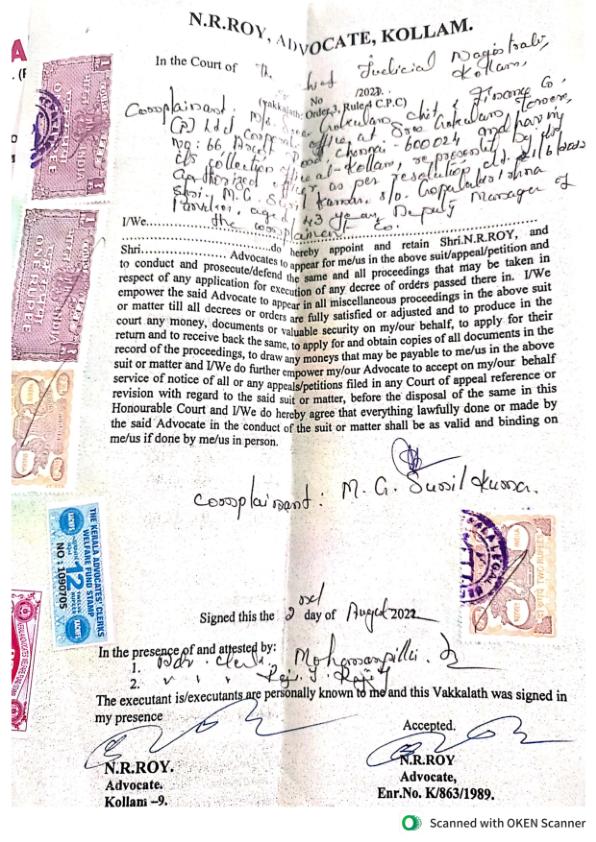 N.R.ROY, ADVOCATE, KOLLAM.
In the Court of The Chief Judicial Magistrate,
Kollam,
No /2022.
(Vakkalath: Order 3, Rule 4 C.P.C)
Complainant: M/s. Sree Gokulam Chit & Finance Co.
(P) Ltd Corporate office at Sree Gokulam Towers,
No: 66, Arcot Road, Chennai - 600024 and having
its collection office at Kollam, represented by its
Authorized officer as per resolution dtd.
Shri. M.G. Sunil Kumar, s/o. Gopalakrishna
aged 43 years, Deputy Manager of
the complainant Co.
I/We....................................................
.........................do hereby appoint and retain Shri.N.R.ROY, and
Shri................ Advocates to appear for me/us in the above suit/appeal/petition and
to conduct and prosecute/defend the same and all proceedings that may be taken in
respect of any application for execution of any decree of orders passed there in. I/We
empower the said Advocate to appear in all miscellaneous proceedings in the above suit
or matter till all decrees or orders are fully satisfied or adjusted and to produce in the
court any money, documents or valuable security on my/our behalf, to apply for their
return and to receive back the same, to apply for and obtain copies of all documents in the
record of the proceedings, to draw any moneys that may be payable to me/us in the above
suit or matter and I/We do further empower my/our Advocate to accept on my/our behalf
service of notice of all or any appeals/petitions filed in any Court of appeal reference or
revision with regard to the said suit or matter, before the disposal of the same in this
Honourable Court and I/We do hereby agree that everything lawfully done or made by
the said Advocate in the conduct of the suit or matter shall be as valid and binding on
me/us if done by me/us in person.
Complainant: M. G. Sunil Kumar.
THE KERALA ADVOCATES' CLERKS
WELFARE FUND STAMP
12
TWELVE
RUPEES
NO : 1090705
TWO RUPEES
ONE RUPEE
INDIA
Signed this the 2nd day of August 2022
In the presence of and attested by:
1. Adv. Clerk. Mohananpillai.
2.
The executant is/executants are personally known to me and this Vakkalath was signed in
my presence
Accepted.
N.R.ROY.
Advocate.
Kollam –9.
N.R.ROY
Advocate,
Enr.No. K/863/1989.
Scanned with OKEN Scanner